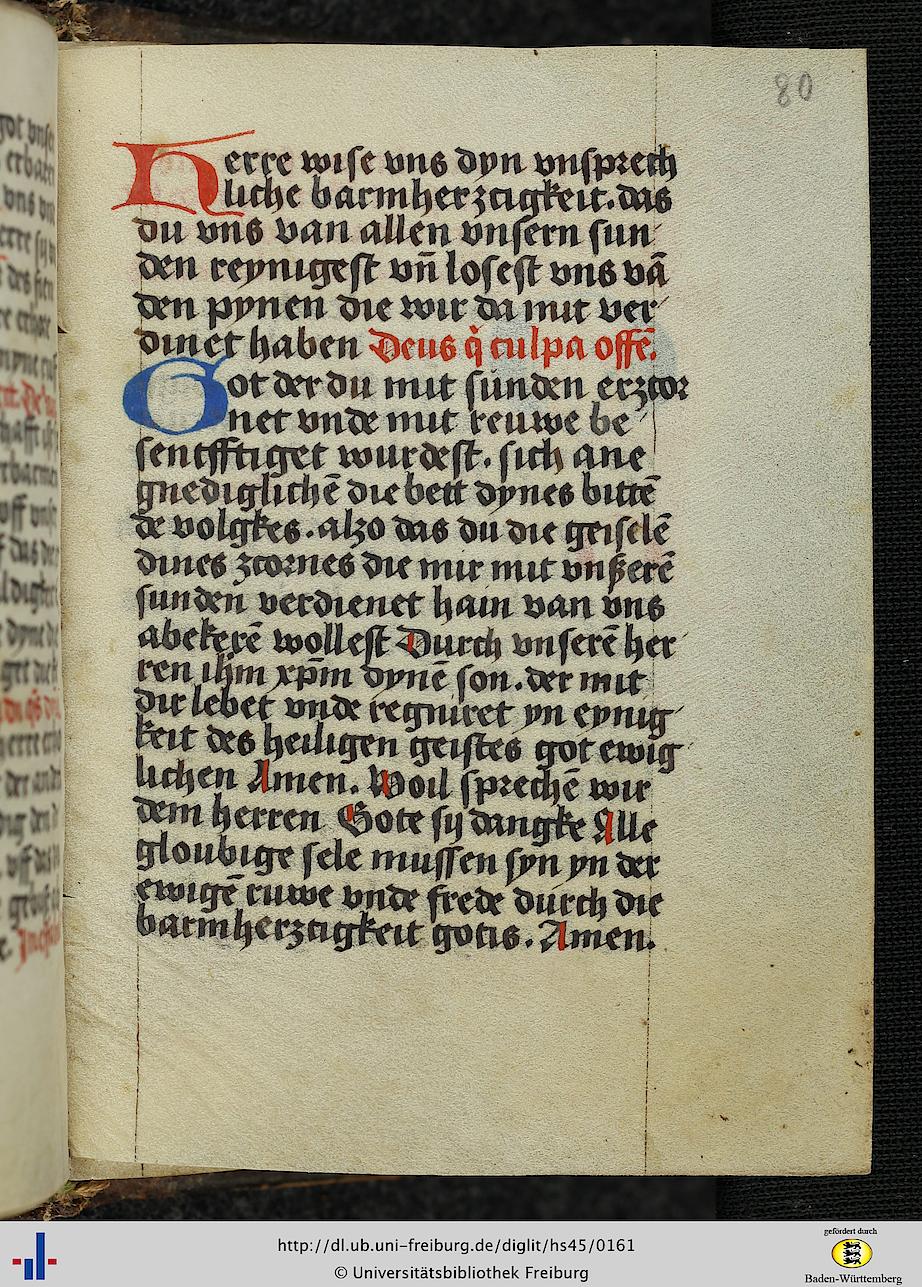 80
Herre wise vns dyn vnsprech
liche barmherzcigkeit. das
du vns van allen vnsern sun
den reynigest vn̄ losest vns vā
den pynen die wir da mit ver
dinet haben Deus q̇ culpa offē.
Got der du mit sunden erzcor
net vnde mit reuwe be
senfftiget wurdest. sich ane
gnediglichē die bett dynes bittē
de volgkes. alzo das du die geiselē
dines zcornes die mir mit vnßerē
sunden verdienet hain van vns
abekerē wollest Durch vnserē her
ren ihm xp̄m dynē son. der mit
dir lebet vnde regniret yn eynig
keit des heiligen geistes got ewig
lichen Amen. Woil sprechē wir
dem herren Gote sy dangke Alle
gloubige sele mussen syn yn der
ewigē ruwe vnde frede durch die
barmherzcigkeit gotis. Amen.
http://dl.ub.uni-freiburg.de/diglit/hs45/0161
© Universitätsbibliothek Freiburg
gefördert durch
Baden-Württemberg